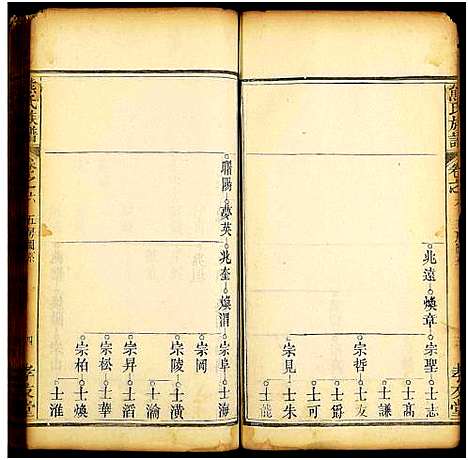 熊氏族譜
卷之六
兆遠 煥章 宗聖 士志
士高
士謙
宗哲 士友
士爵
士可
宗見 士朱
士龍
孝友堂
聯陽 夢英 兆奎 煥渭 宗阜 士海
宗岡
宗陵 士潢
士瀹
宗昇 士滔
宗松 士華
宗柏 士煥
士淮
熊氏族譜
卷之六 五房圖系
四
孝友堂